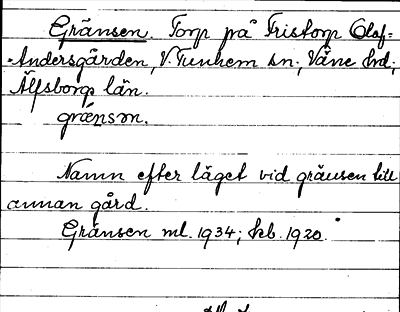 Gränsen. Torp på Fristorp Olof-
Andersgården, V. Tunhem sn; Väne hd;
Älfsborgs län.
grǽnsən.
Namn efter läget vid gränsen till
annan gård.
Gränsen ml. 1934; kb. 1920.